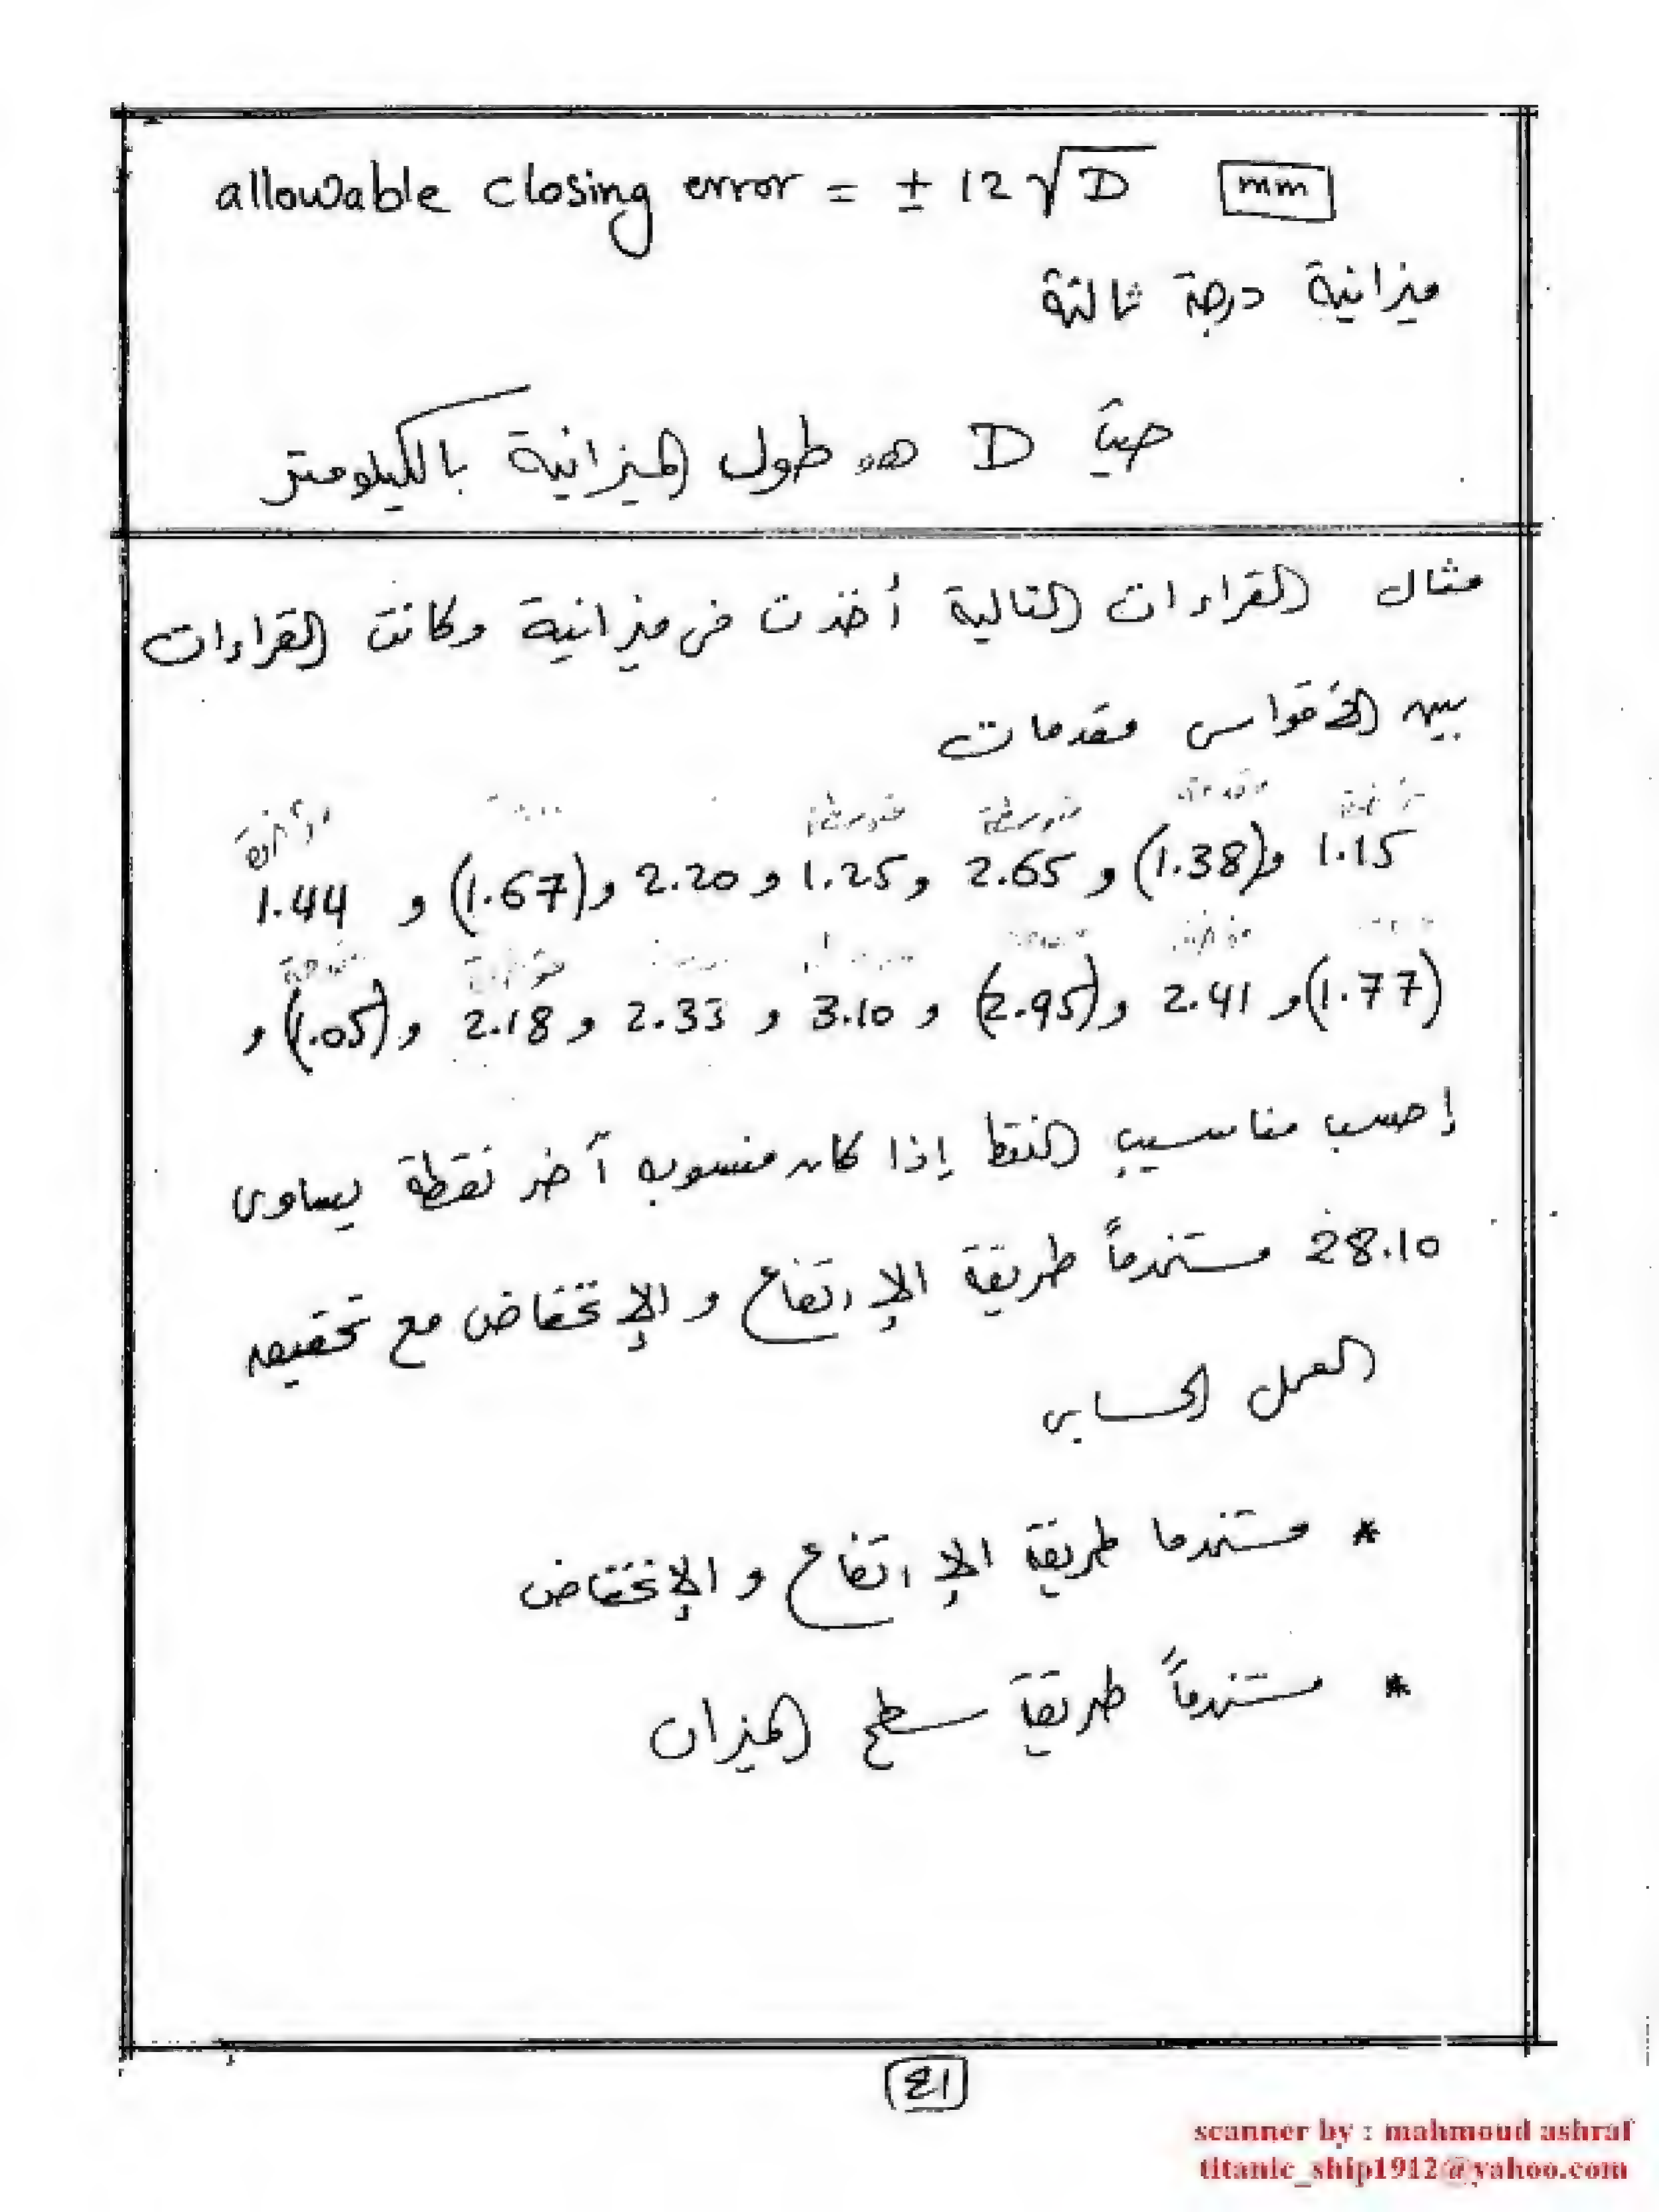 allowable closing error = ± 12√D mm
ميزانية درجة ثالثة
حيث D هو طول الميزانية بالكيلومتر
مثال القراءات التالية أخذت في ميزانية وكانت القراءات
بين الأقواس مقدمات
مؤخرة مقدمة متوسطة متوسطة مؤخرة
1.15 و (1.38) و 2.65 و 1.25 و 2.20 و (1.67) و 1.44
مؤخرة مقدمة
(1.77) و 2.41 و (2.95) و 3.10 و 2.33 و 2.18 و (1.05) و
إحسب مناسيب النقط إذا كان منسوب آخر نقطة يساوى
28.10 مستخدماً طريقة الإرتفاع والإنخفاض مع تحقيق
العمل الحسابى
* مستخدما طريقة الإرتفاع والإنخفاض
* مستخدماً طريقة سطح الميزان
٤١
scanner by : mahmoud ashraf
titanic_ship1912@yahoo.com